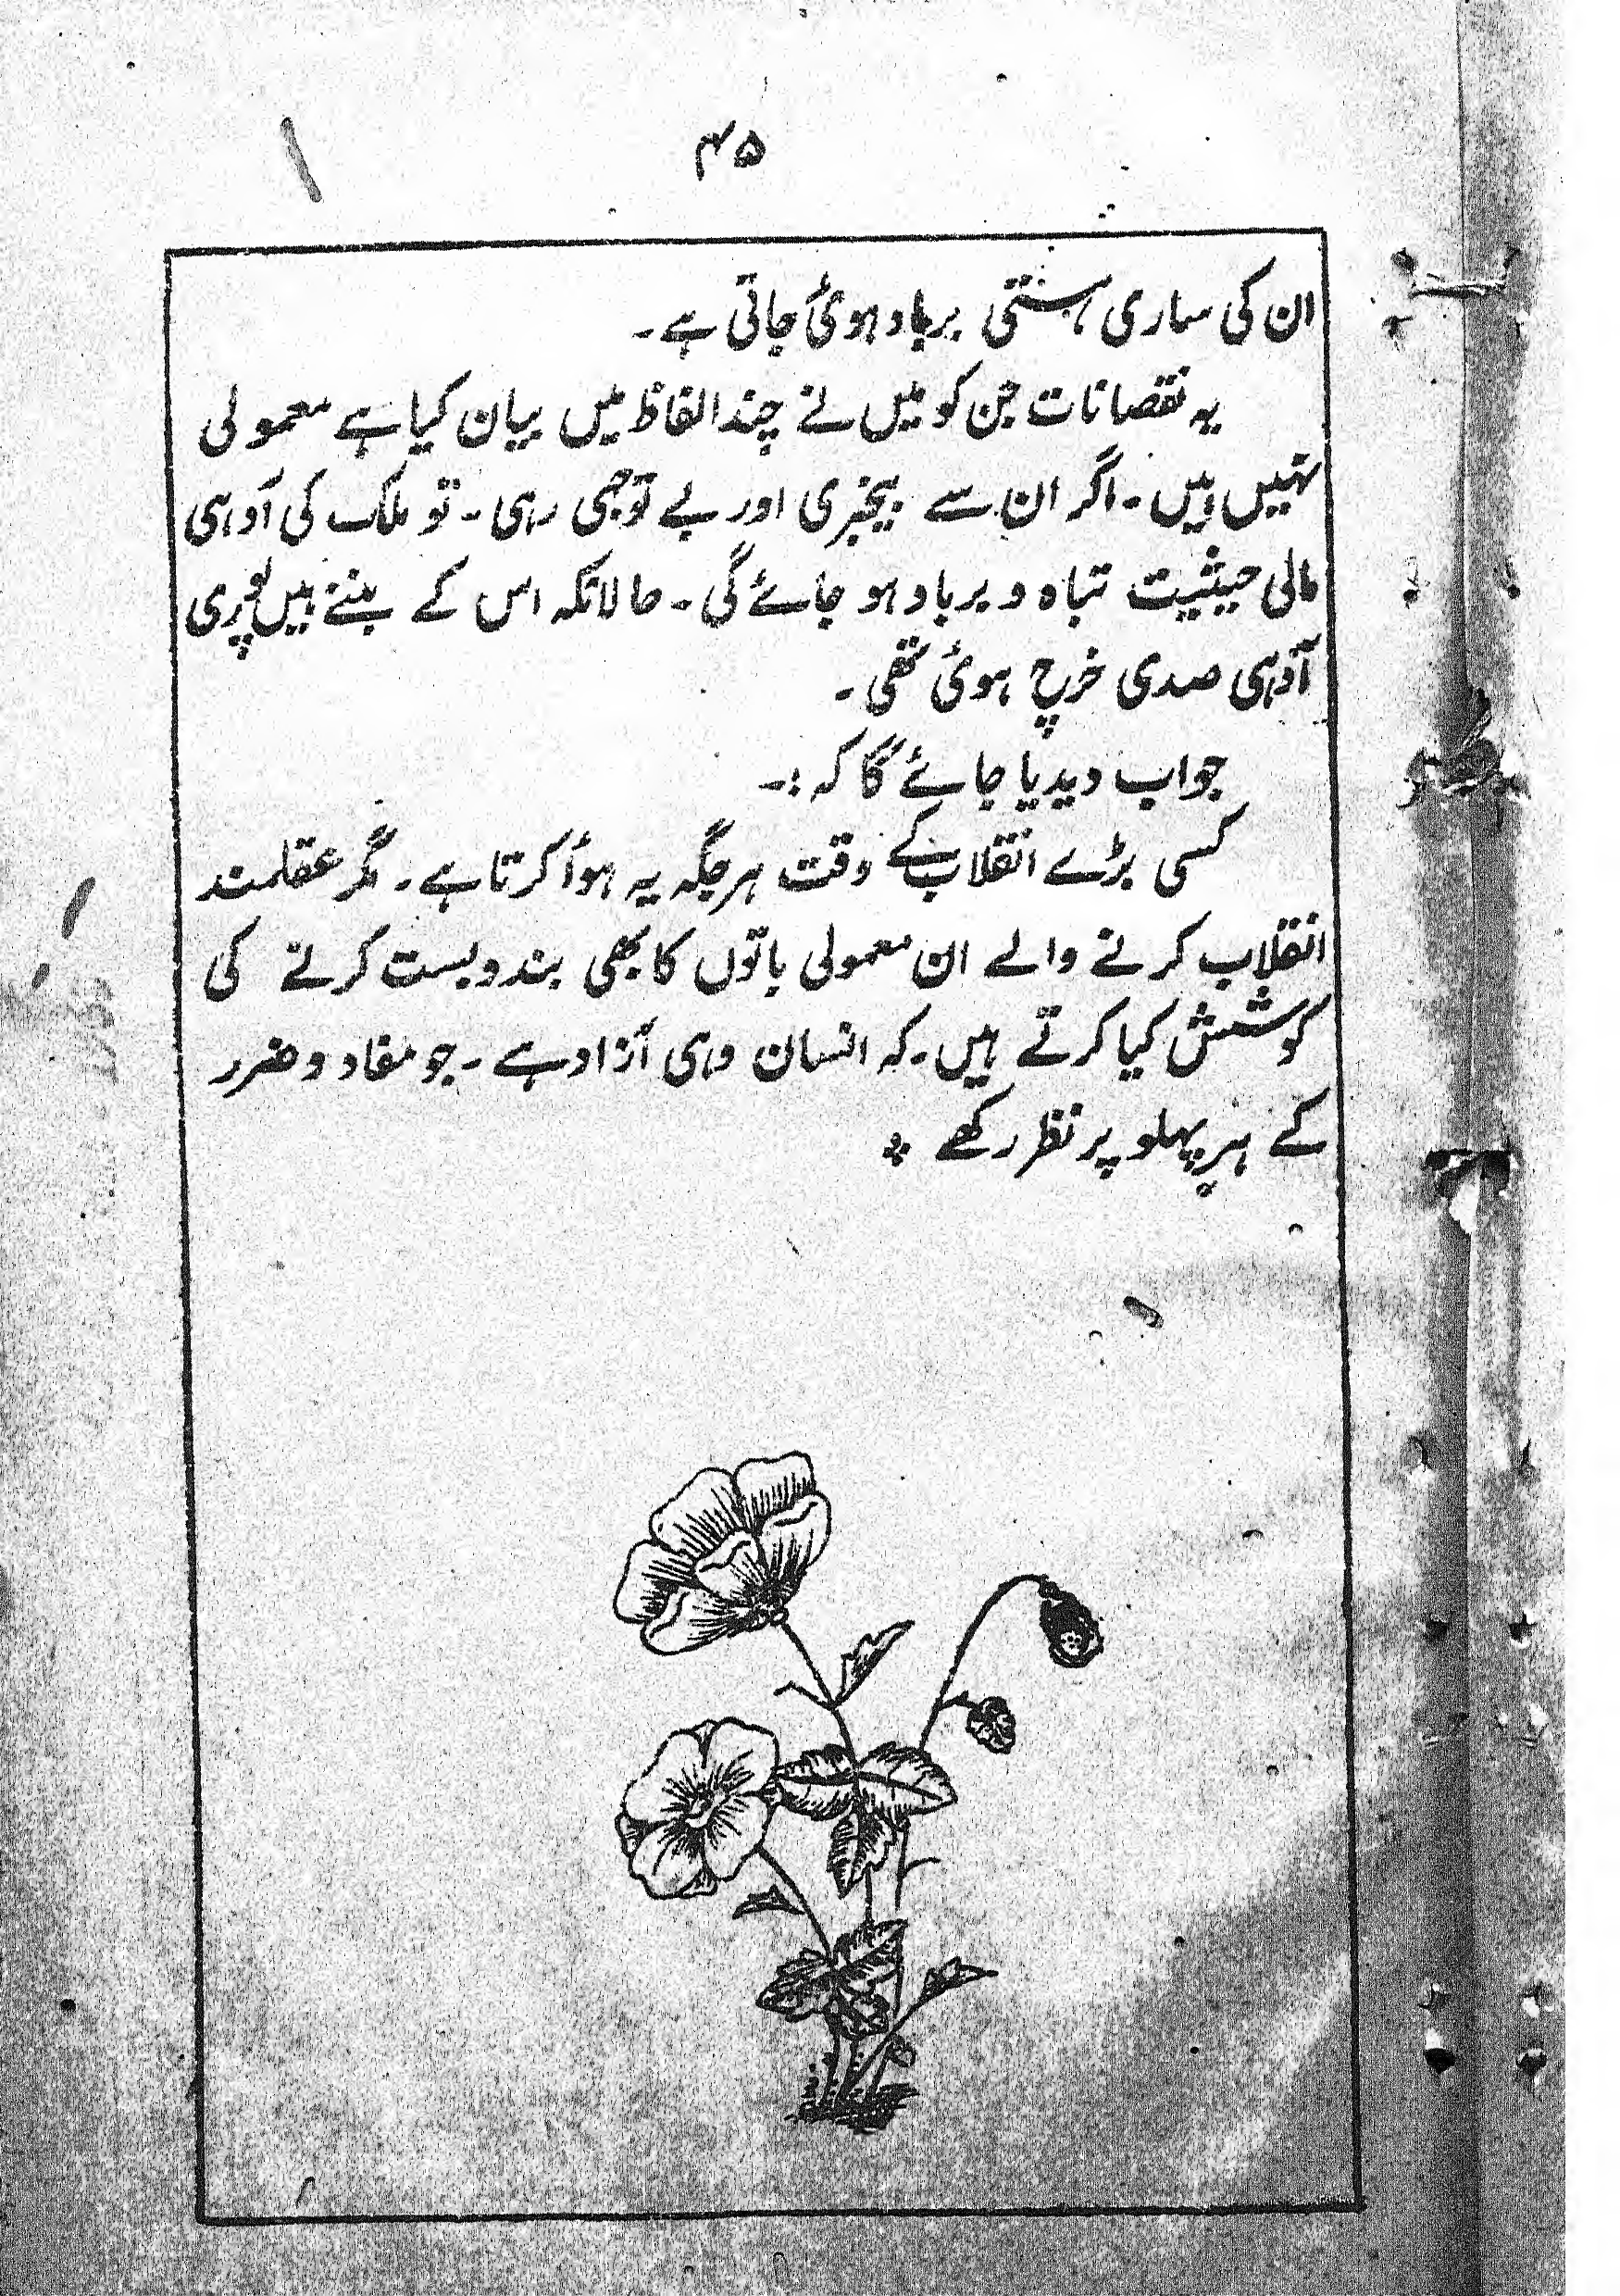 ۴۵
ان کی ساری ہستی برباد ہوئی جاتی ہے۔
یہ نقصانات جن کو میں نے چند الفاظ میں بیان کیا ہے معمولی
نہیں ہیں۔ اگر ان سے بیخبری اور بے توجہی رہی۔ تو ملک کی آدہی
مالی حیثیت تباہ و برباد ہو جائے گی۔ حالانکہ اس کے بننے میں پوری
آدہی صدی خرچ ہوئی تھی۔
جواب دیدیا جائے گا کہ :۔
کسی بڑے انقلاب کے وقت ہر جگہ یہ ہوأ کرتا ہے۔ مگر عقلمند
انقلاب کرنے والے ان معمولی باتوں کا بھی بندوبست کرنے کی
کوشش کیا کرتے ہیں۔ کہ انسان وہی آزاد ہے۔ جو مفاد و ضرر
کے ہر پہلو پر نظر رکھے